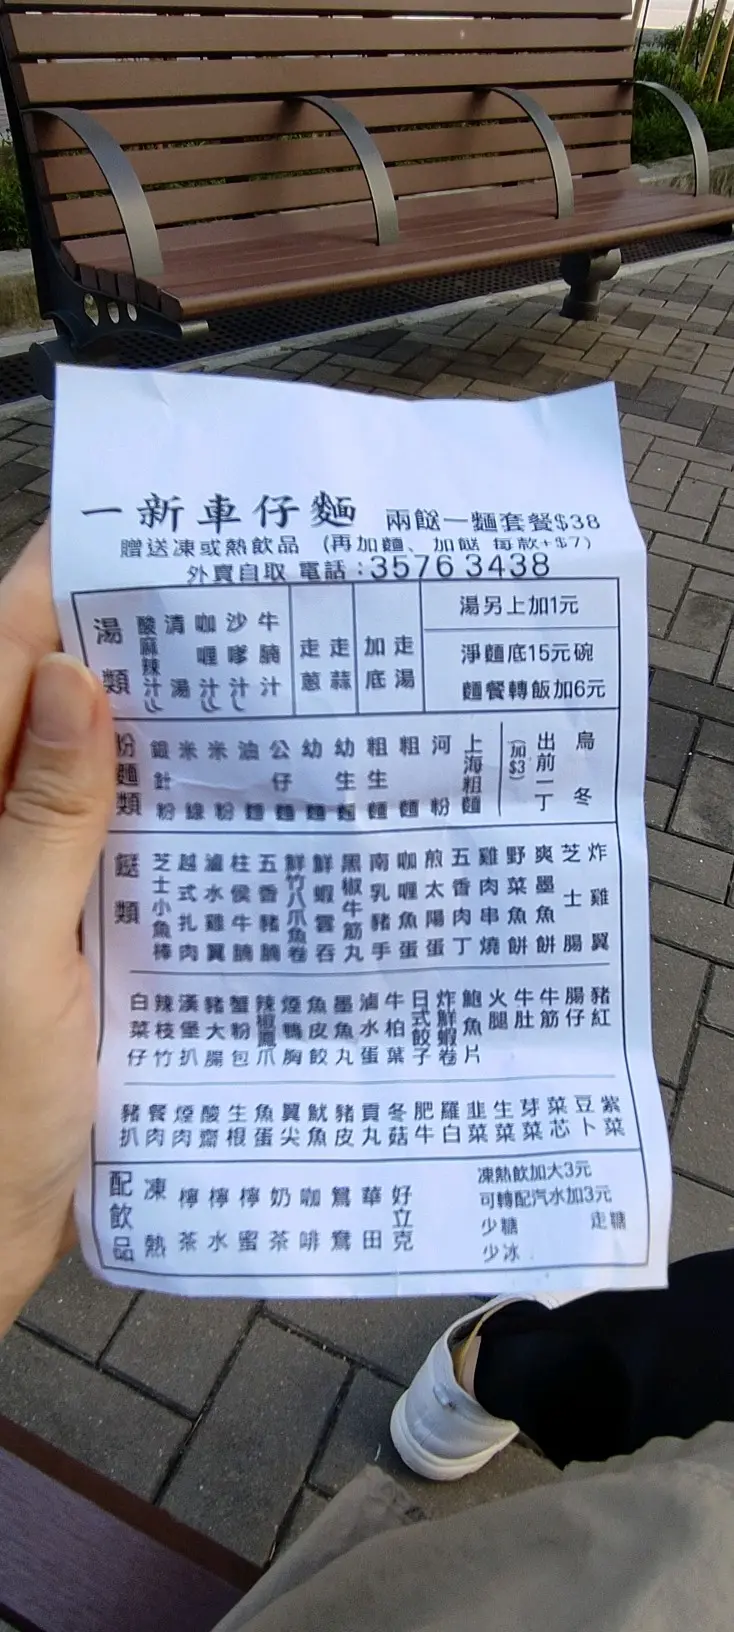 一新車仔麵 兩餸一麵套餐$38
贈送凍或熱飲品 (再加麵、加餸 每款+$7)
外賣自取 電話:3576 3438
湯類
酸麻辣汁
清湯
咖喱汁
沙嗲汁
牛腩汁
走蔥
走蒜
加底
走湯
湯另上加1元
淨麵底15元碗
麵餐轉飯加6元
粉麵類
銀針粉
米線
米粉
油麵
公仔麵
幼麵
幼生麵
粗生麵
粗麵
河粉
上海粗麵
(加$3)
出前一丁
烏冬
餸類
芝士小魚棒
越式扎肉
滷水雞翼
柱侯牛腩
五香豬腩
鮮竹八爪魚卷
鮮蝦雲吞
黑椒牛筋丸
南乳豬手
咖喱魚蛋
煎太陽蛋
五香肉丁
雞肉串燒
野菜魚餅
爽墨魚餅
芝士腸
炸雞翼
白菜仔
辣枝竹
漢堡扒
豬大腸
蟹粉包
辣椒鳳爪
煙鴨胸
魚皮餃
墨魚丸
滷水蛋
牛柏葉
日式餃子
炸鮮蝦卷
鮑魚片
火腿
牛肚
牛筋
腸仔
豬紅
豬扒
餐肉
煙肉
酸齋
生根
魚蛋
翼尖
魷魚
豬皮
貢丸
冬菇
肥牛
羅白
韭菜
生菜
芽菜
菜芯
豆卜
紫菜
配飲品
凍
熱
檸茶
檸水
檸蜜
奶茶
咖啡
鴛鴦
華田
好立克
凍熱飲加大3元
可轉配汽水加3元
少糖 走糖
少冰